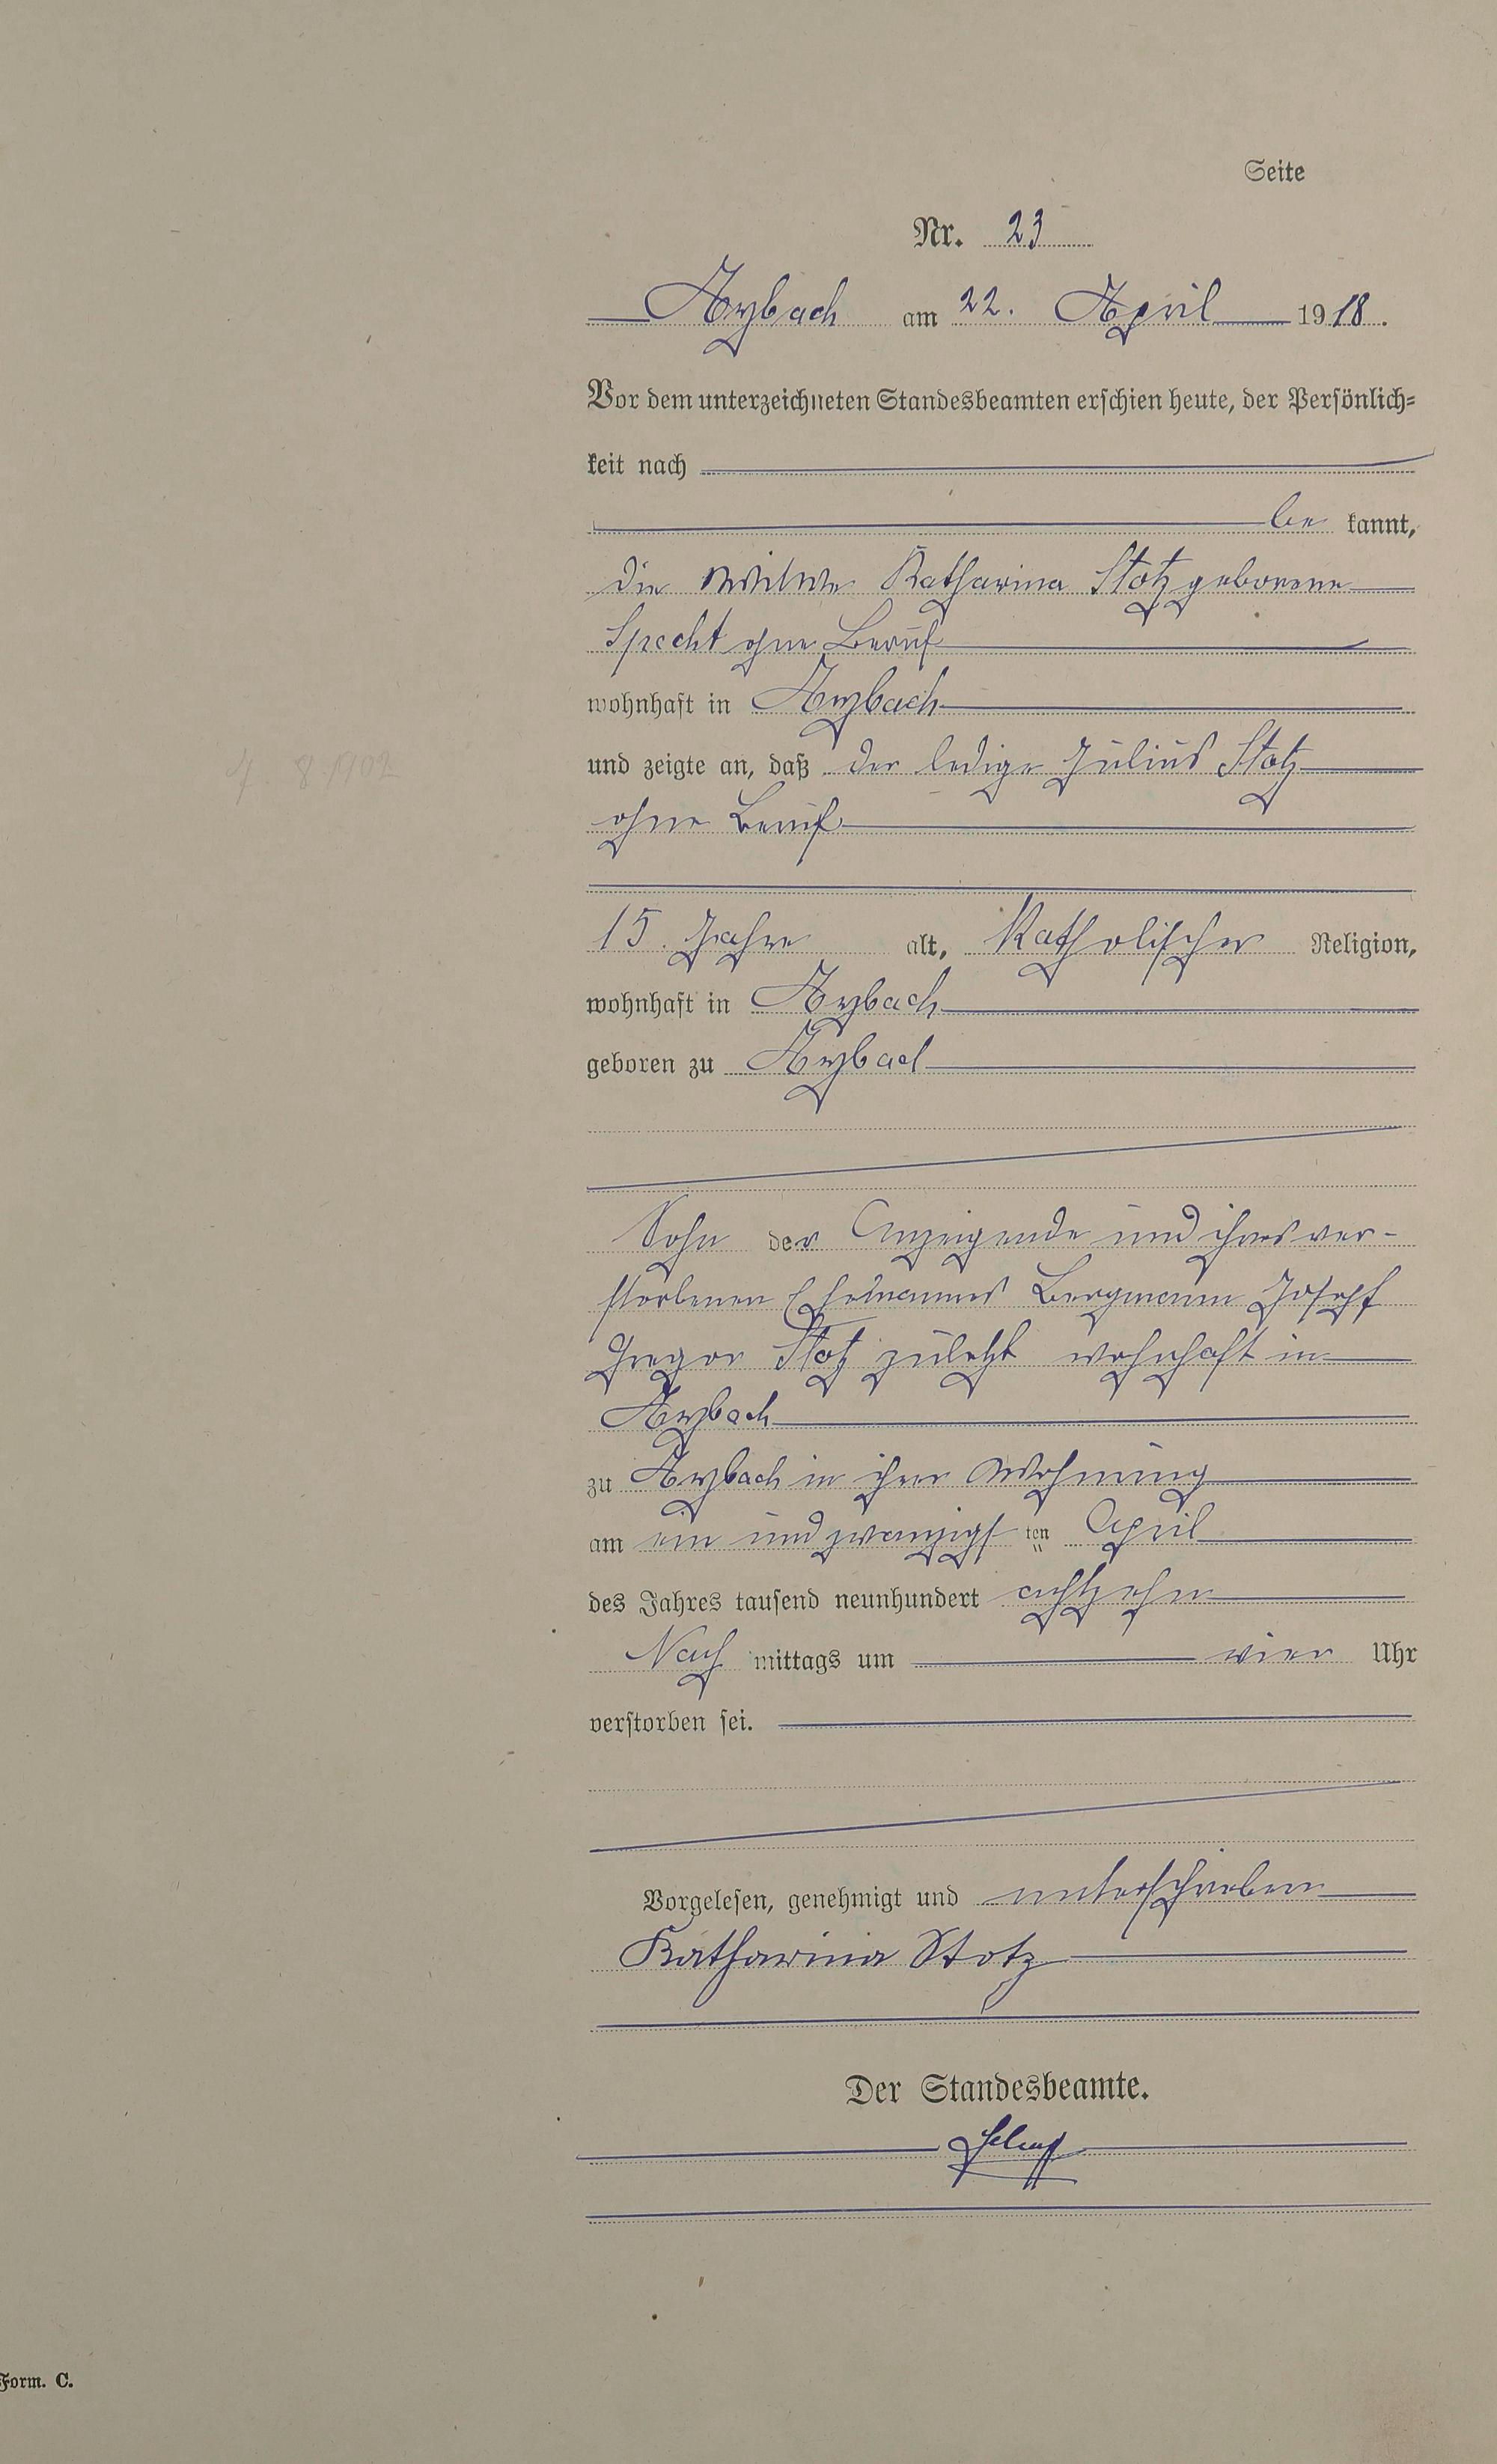 Seite
Nr. 23
Arzbach am 22. April 1918.
Vor dem unterzeichneten Standesbeamten erschien heute, der Persönlich=
keit nach
be kannt,
die Witwe Katharina Stotz geborene
Specht ohne Beruf
wohnhaft in Arzbach
und zeigte an, daß der ledige Julius Stotz
ohne Beruf
15 Jahre alt, Katholischer Religion,
wohnhaft in Arzbach
geboren zu Arzbach
Sohn der Anzeigende und ihres ver-
storbenen Ehemannes Bergmann Joseph
Gregor Stotz zuletzt wohnhaft in
Arzbach
zu Arzbach in ihrer Wohnung
am ein und zwanzigsten April
des Jahres tausend neunhundert achtzehn
Nach mittags um vier Uhr
verstorben sei.
Vorgelesen, genehmigt und unterschrieben
Katharina Stotz
Der Standesbeamte.
4 8 1902
Form. C.